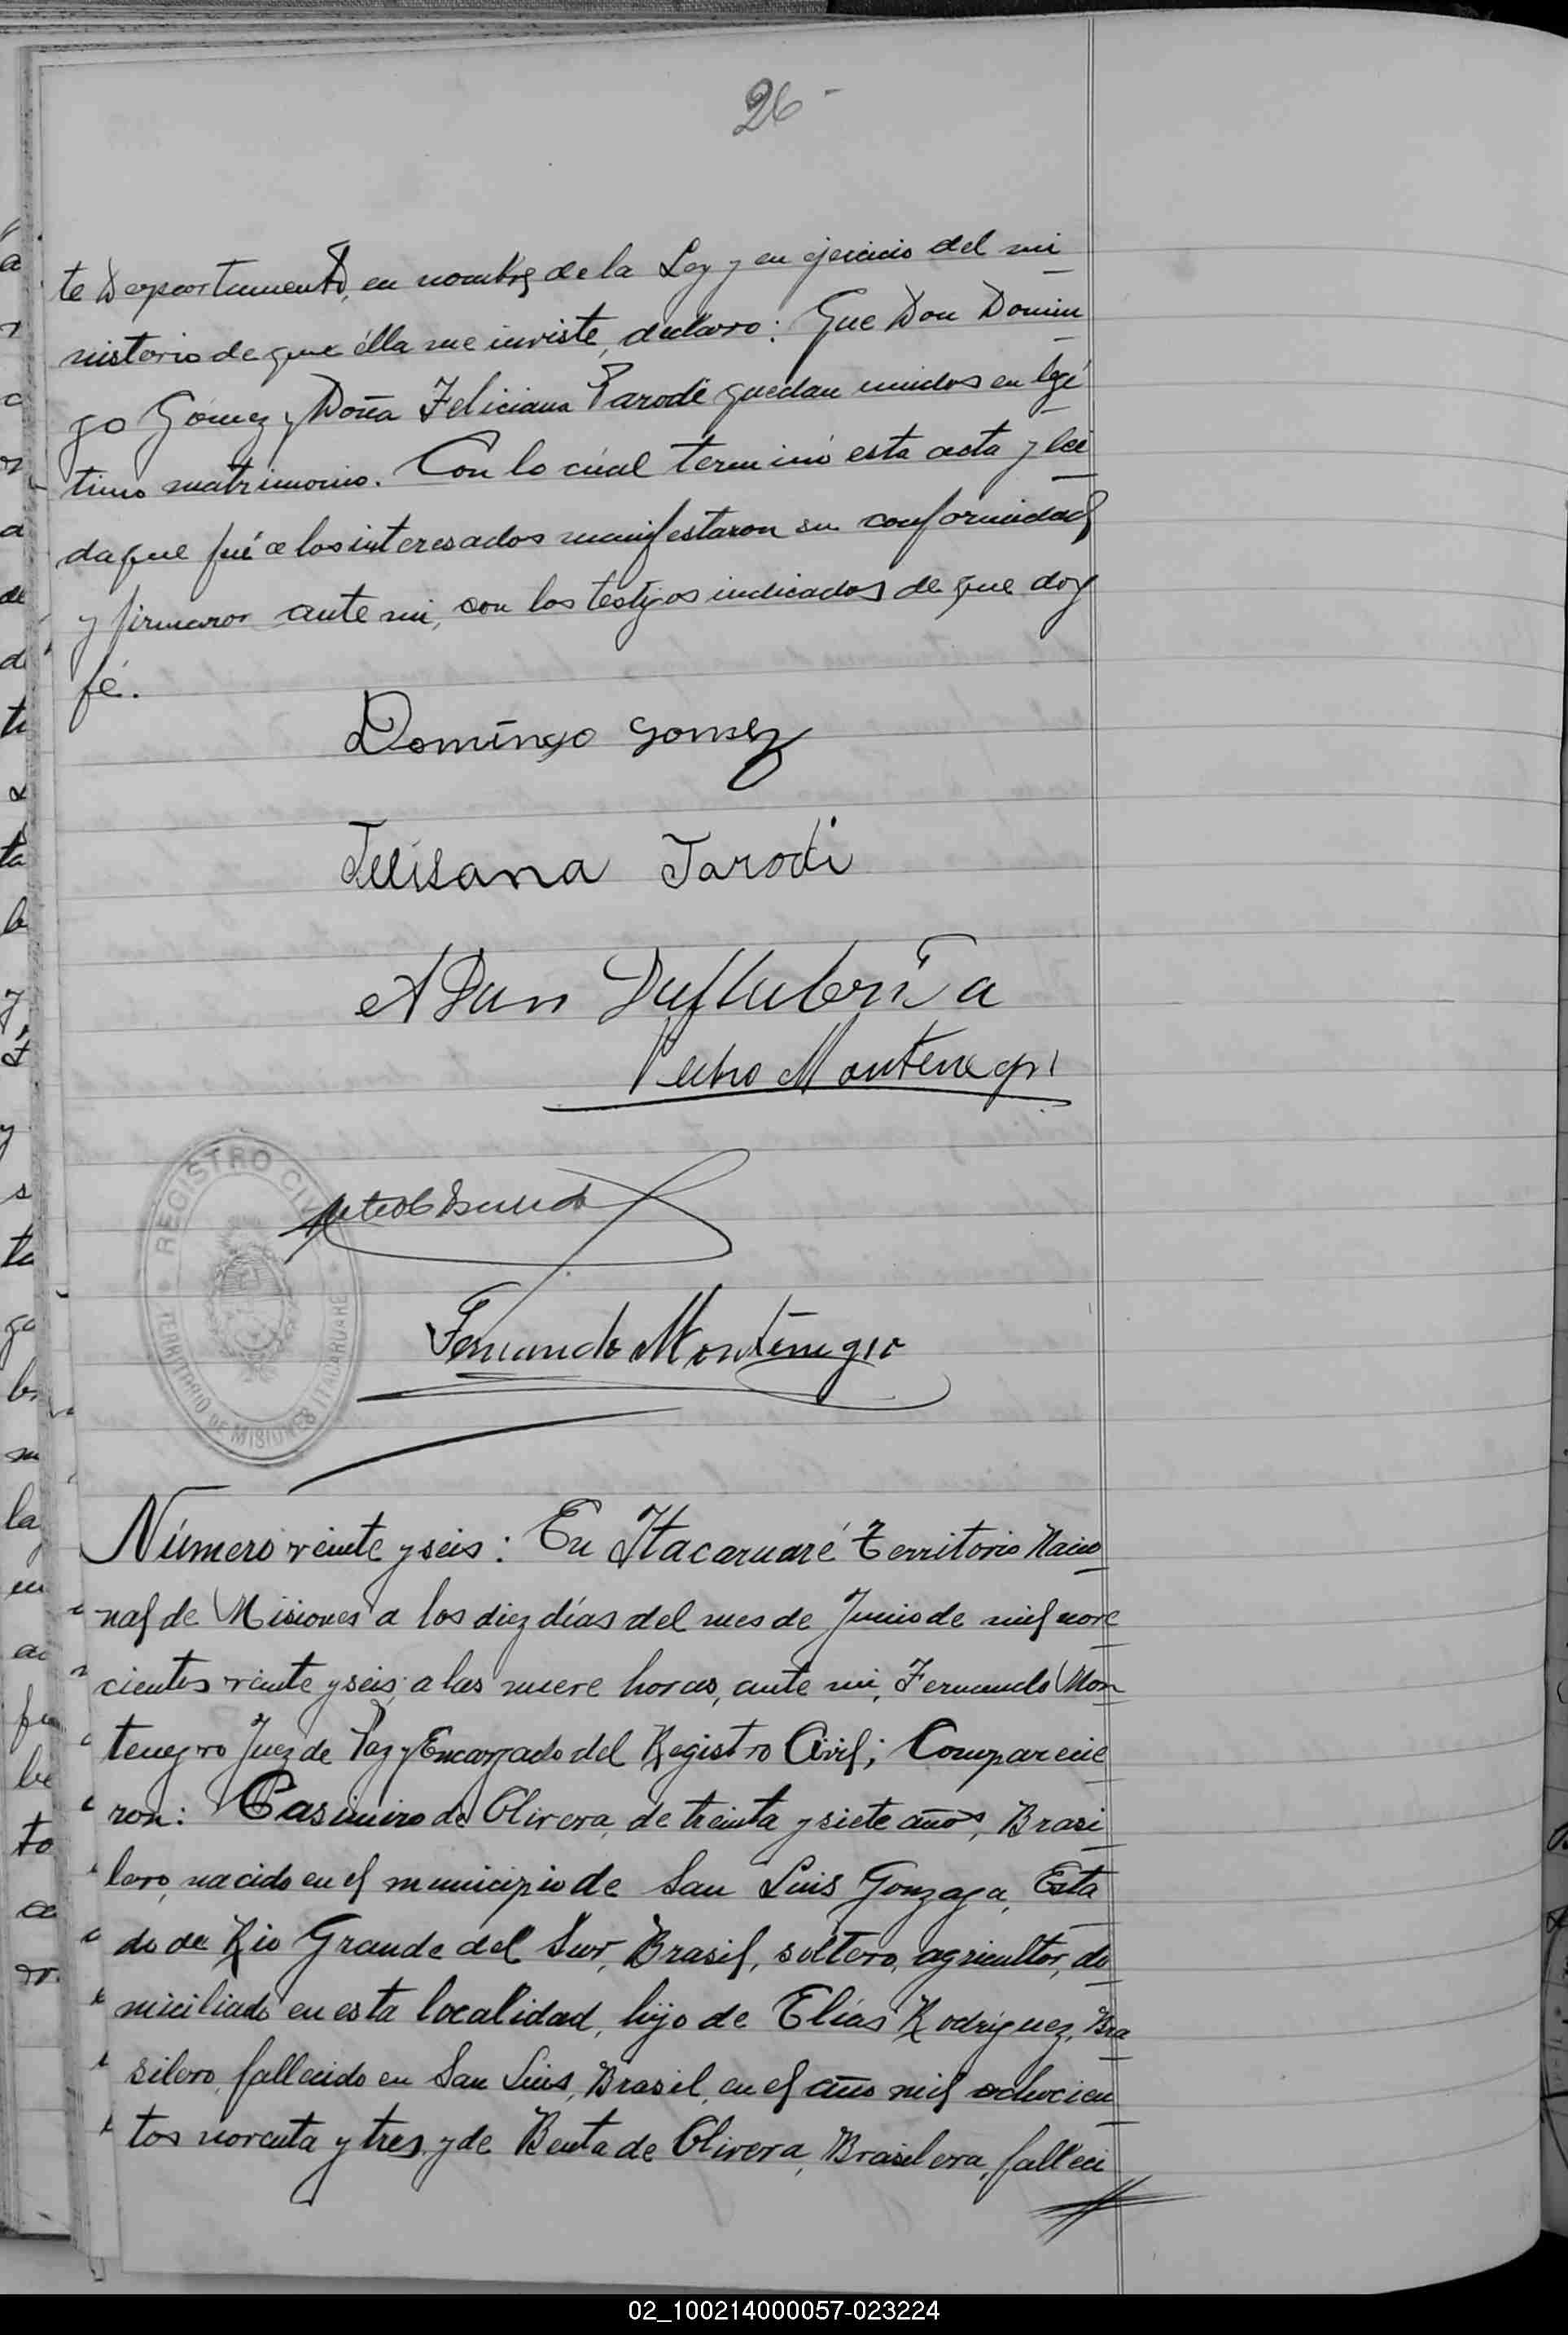 26-
te Departamento, en nombre de la Ley y en ejercicio del mi
nisterio de que élla me inviste, declaro: Que Don Domin
go Gómez y Doña Feliciana Parodi quedan unidos en legí
timo matrimonio. Con lo cúal terminó esta acta y leí
da que fué a los interesados manifestaron su conformidad
y firmaron ante mi, con los testigos indicados de que doy
fé.
Domingo Gomez
Parodi
Adan
Pedro Montenegro
REGISTRO CIVIL
TERRITORIO DE MISIONES ITACARUARE
Fernando Montenegro
Número veinte y seis: En Itacaruaré Territorio Nacio
nal de Misiones a los diez días del mes de Junio de mil nove
cientos veinte y seis, a las nueve horas, ante mi, Fernando Mon
tenegro Juez de Paz y Encargado del Registro Civil; Comparecie
ron: Casimiro de Olivera, de treinta y siete años, Brasi
lero, nacido en el municipio de San Luis Gonzaga, Esta
do de Rio Grande del Sur, Brasil, soltero, agricultor, do
miciliado en esta localidad, hijo de Elías Rodríguez, Bra
silero, fallecido en San Luis, Brasil, en el año mil ochocien
tos noventa y tres, y de Benta de Olivera, Brasilera, falleci
02_100214000057-023224